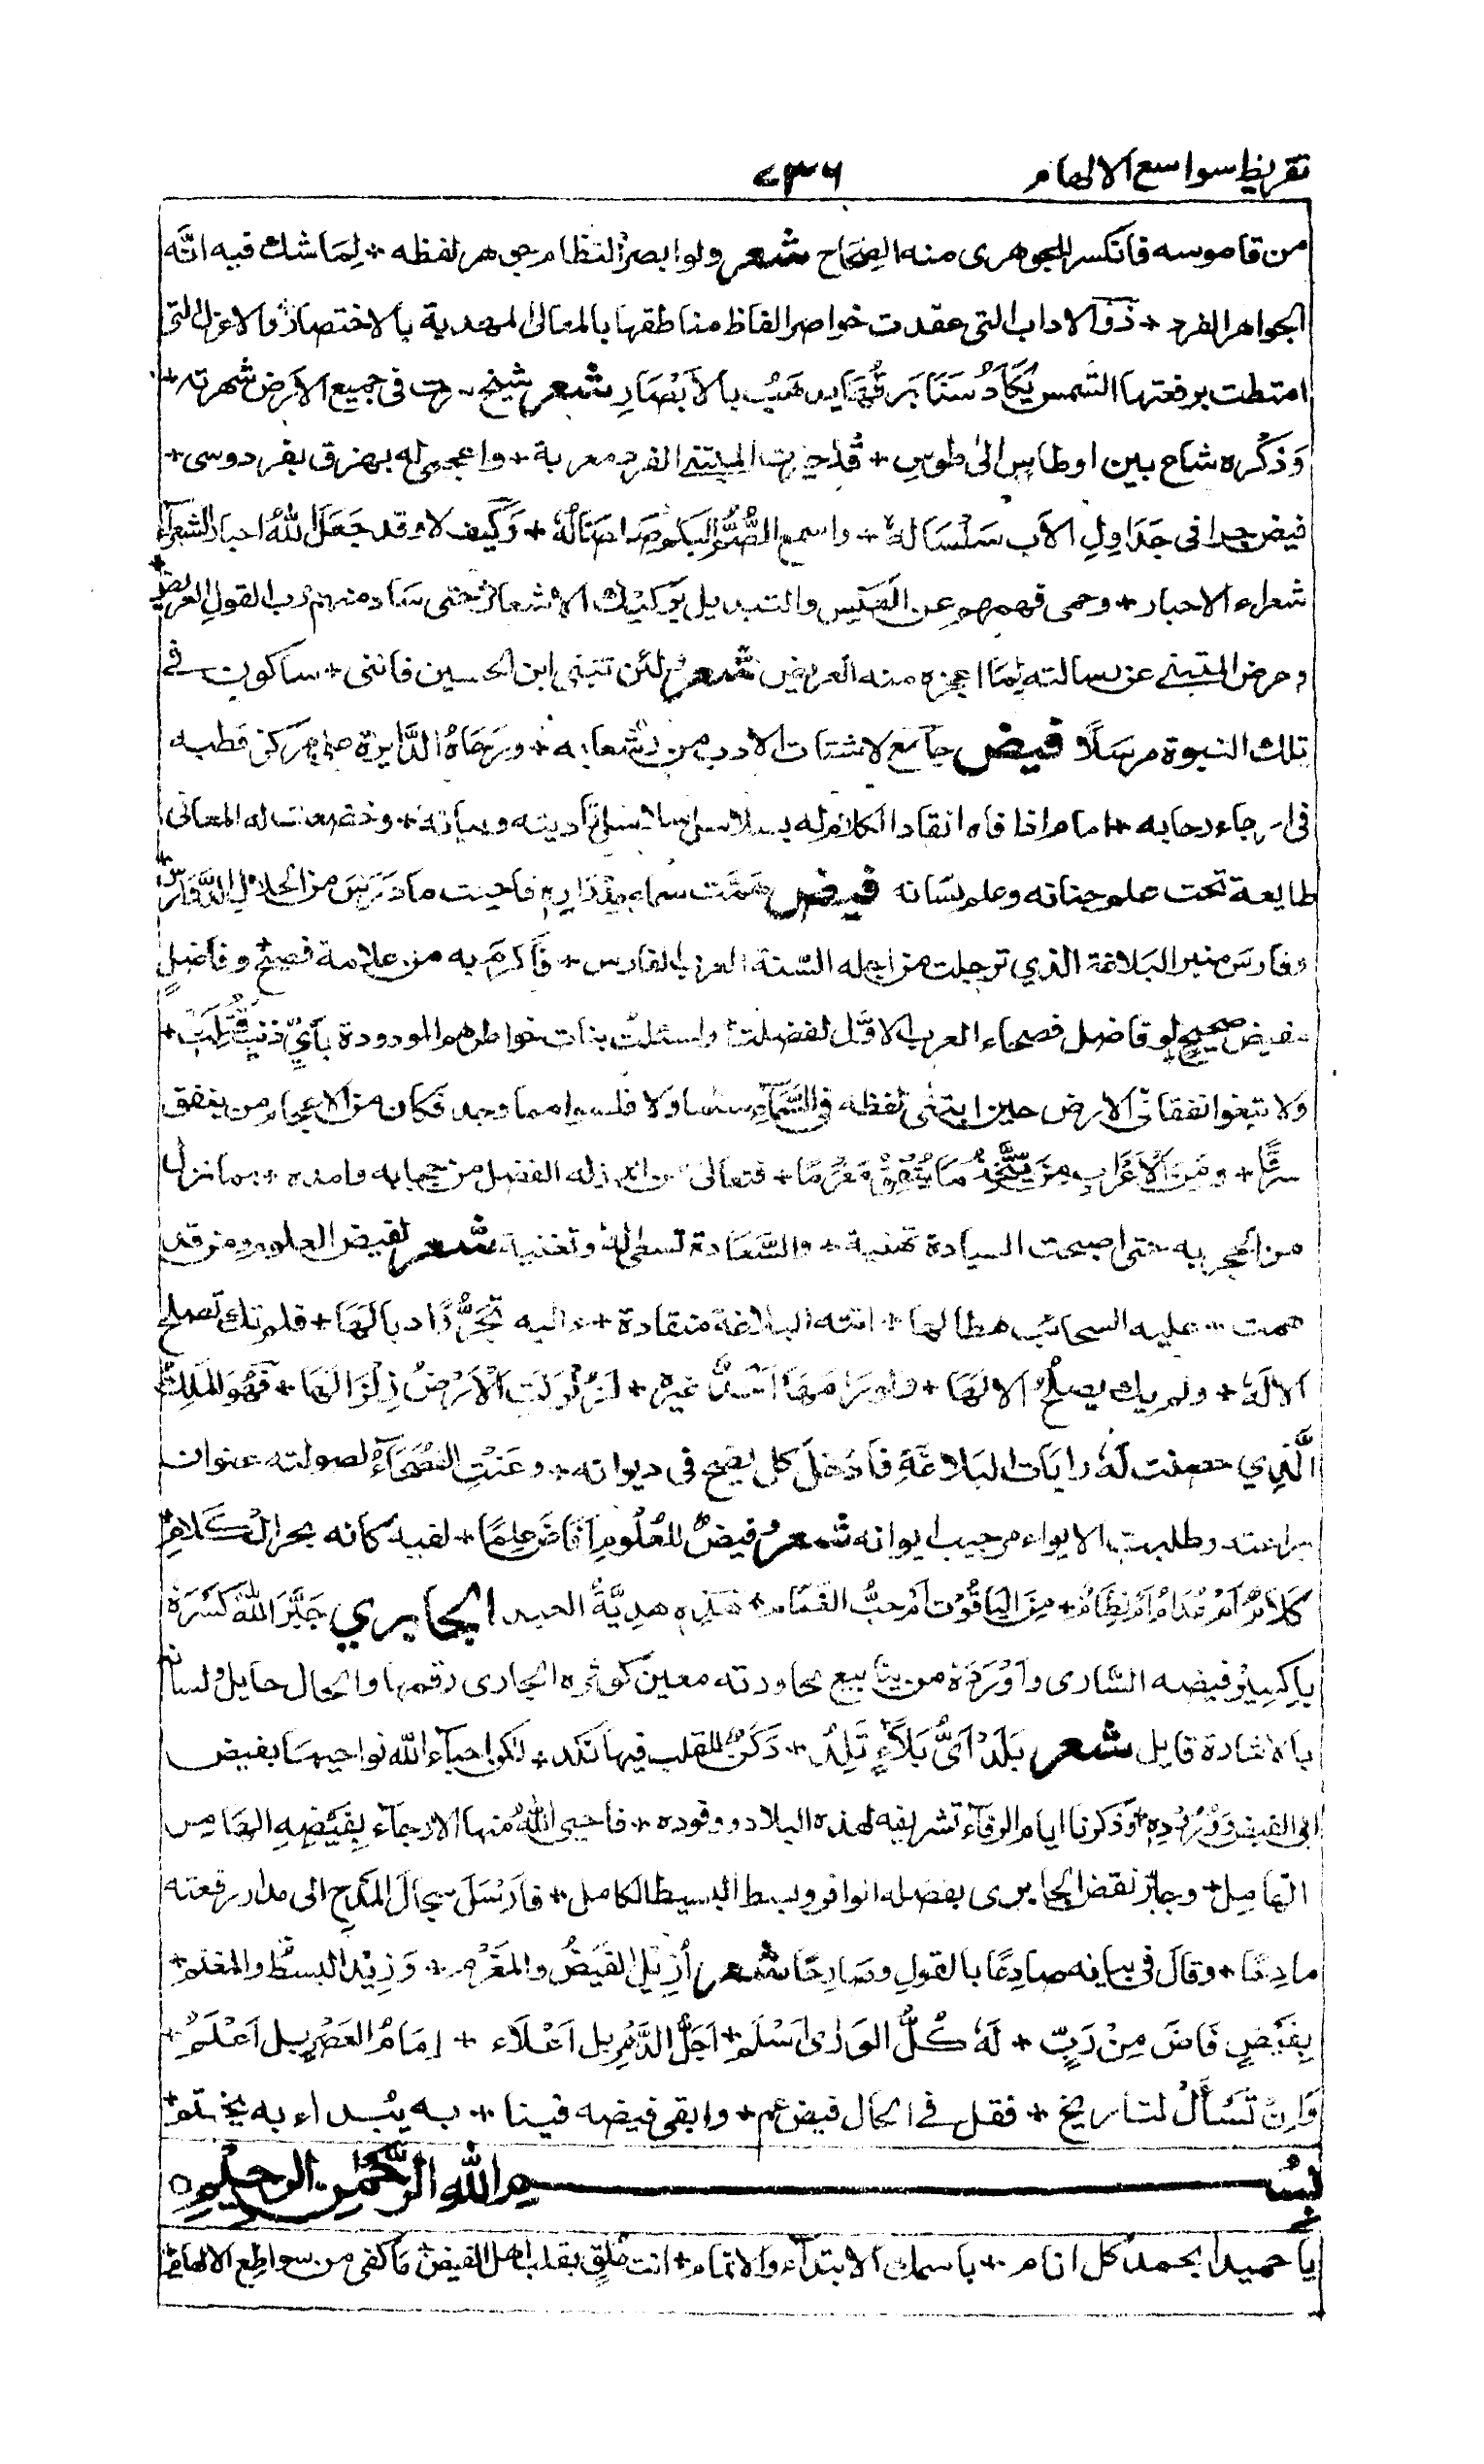 تقريظ سواسع الالهام ٧٣٦
من قاموسه فانكسر الجوهرى منه الصحاح شعر ولو ابصر النظام جوهر لفظه + لما شك فيه انه
الجواهر الفرد + ذو الاداب التى عقدت خواصر الفاظ مناطقها بالمعالى المهدية بالاختصار والاعزل التى
امتطت برفعتها الشمس يكاد سنا برقها يذهب بالابصار شعر شيخ سرت فى جميع الارض شهرته +
وذكره شاح بين اوطاس الى طوس + المتنبى الفرد معربة + واعجمى له بهزق بفردوسى +
فيض جدا فى جداول الاب سلساله + واسمع الصم البكم صلصاله + وكيف لا وقد جعل الله احبار الشعراء
شعراء الاحبار + وحمى فهمهم عن والتبديل الاشعار حتى ساد منهم رب القول العريض +
وحرض المتنبى عن رسالته لما اعجزه منه العريض شعر لئن تتنبى ابن الحسين فاننى + ساكون فى
تلك النبوة مرسلا فيض جامع لاشتات الادب من شعابه + ورحاه الدايرة على مركز قطبه
فى ارجاء رحابه + امام اذا فاه انقاد الكلام له بسلاسل سلاسل تأديته وبيانه + وخضعت له المعانى
طايعة تحت علم جنانه وعلم لسانه فيض همت سماء فاحيت ما درس من الدوارس
وفارس منبر البلاغة الذي ترجلت من اجله السنة العرب الفارس + فاكرم به من علامة فصيح وفاضل
مفيض صحيح لو فاضل فصحاء العرب الاول لفضلت واسئلت بنات خواطرهم الموودة بأي ذنب قتلت +
ولا تبغوا نفقا فى الارض حين ابتغى لفظه فى السماء سلما ولا فلسوا مما وجد فكان من الاعجام من ينفق
سرا + ومن الاعراب من يتخذ ما ينفق مغرما + فتعالى من ابرز له الفضل من حجابه وامده + بما نزل
من الحجر به حتى اصبحت السيادة تمنيه + والسعادة تسعى له وتغنيه شعر لفيض العلوم ومن قد
همت عليه السحائب هطالها + اتته البلاغة منقادة + واليه تجرر اذيالها + فلم تك تصلح
الا له + ولم يك يصلح الا لها + ولو رامها احد غيره + لزلزلت الارض زلزالها + فهو الملك
الذي له رايات البلاغة فادخل كل يضح فى ديوانه + وعنت الفصحاء لصولته عنوان
براعته وطلبت الايواء من جيب ايوانه شعر فيض للعلوم افاض علما + لفيه كانه بحر الكلام
كلام ام مدام ام نظام + من الياقوت ام حب الغمام + هذه هدية العبد الجابري جبر الله كسره
باكسير فيضه السارى واورده من ينابيع محاورته معين كوثره الجارى رقمها والحال حايل ولسانه
بالاشارة قايل شعر بلد اى بلاء تلد + ذكر للقلب فيها نكد + لكن احياء الله نواحيها بفيض
ابى الفيض ووروده + وذكرنا ايام الوفاء تشريفه لهذه البلاد ووفوده + فاحيى الله منها الارجاء بفيضه الهامر
الهامل + وجابر نقض الجابرى بفضله الوافر وبسط البسيط الكامل + فارسل سجال المدح الى مدار رفعته
مادحا + وقال فى بيانه صادعا بالقول وصارحا شعر ازيل القيض والمغرم + وزيد البسط والمغنم +
بفيض فاض من رب + له كل الورى اسلم + اجل الدهر بل اعلاه + امام العصر بل اعلم +
وان تسأل لتاريخ + فقل فى الحال فيض عم + وابقى فيضه فينا + به يبداء به يختم +
بسم الله الرحمن الرحيم
يا حميدا بحمد كل انام + باسمك الابتداء والاتمام + انت ملق بقلب اهل الفيض ما كفى من سواطع الالهام +